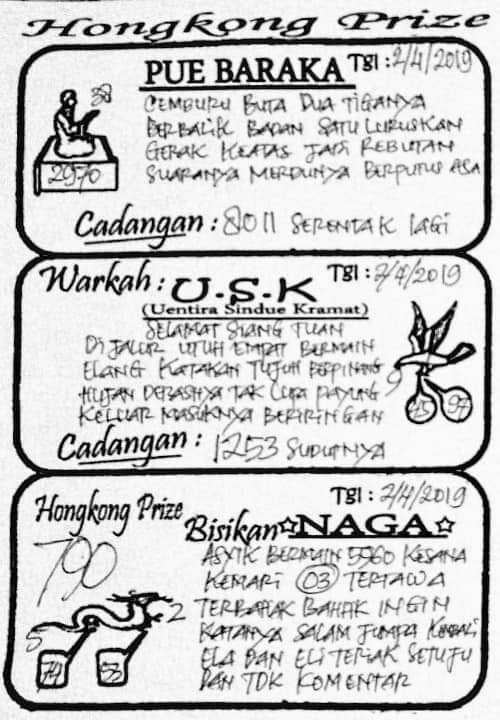 Hongkong Prize
PUE BARAKA Tgl : 2/4/2019
38
2970
CEMBURU BUTA DUA TIGANYA
BERBALIK BADAN SATU LURUSKAN
GERAK KEATAS JADI REBUTAN
SUARANYA MERDUNYA BERPUTUS ASA
Cadangan : 8011 SERENTAK LAGI
Warkah : U-S-K Tgl : 2/4/2019
(Uentira Sindue Kramat)
SELAMAT SIANG TUAN
DI JALUR UTUH EMPAT BERMAIN
ELANG KATAKAN TUJUH BERPINANG
HUJAN DERASNYA TAK LUPA PAYUNG
KELUAR MASUKNYA BERIRINGAN
9
45 97
Cadangan : 1253 SUDUTNYA
Hongkong Prize Tgl : 2/4/2019
Bisikan ☆NAGA☆
790
ASYIK BERMAIN 5560 KESANA
KEMARI 03 TERTAWA
TERBAHAK BAHAK INGIN
KATANYA SALAM JUMPA KEMBALI
ELA DAN ELI TERIAK SETUJU
DAN TDK KOMENTAR
2
5
74 53